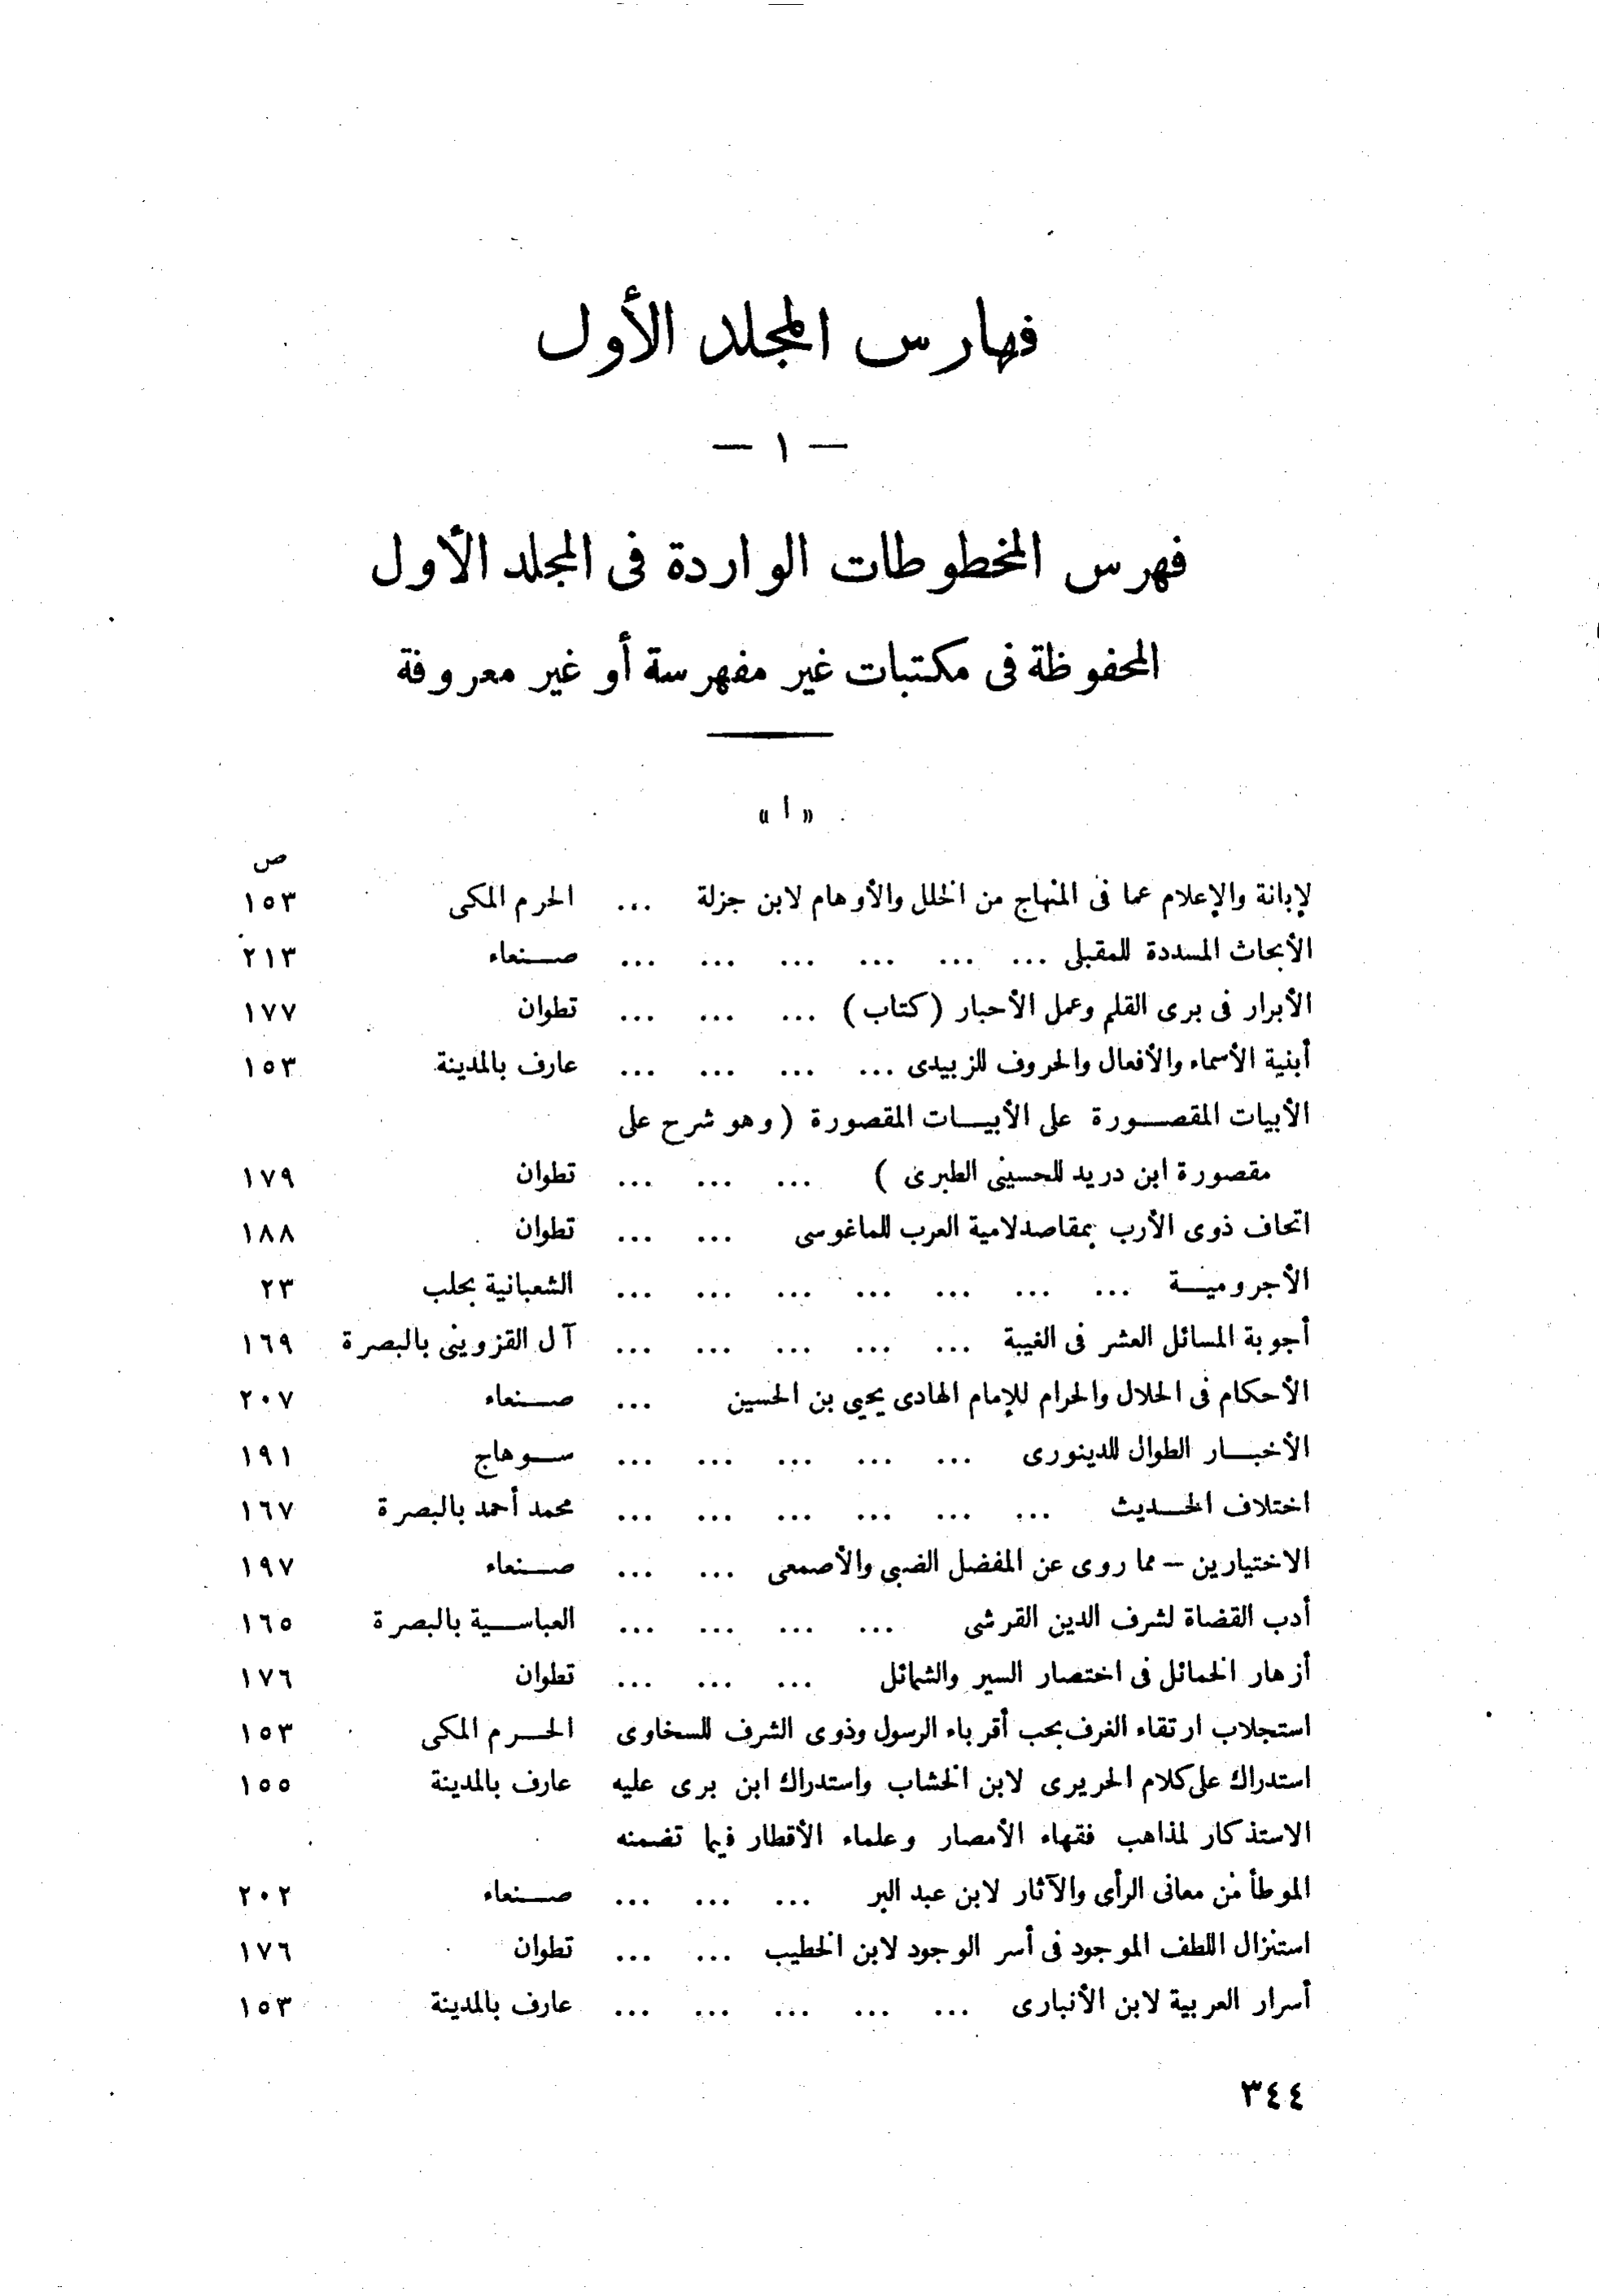 فهارس المجلد الأول
— ١ —
فهرس المخطوطات الواردة فى المجلد الأول
المحفوظة فى مكتبات غير مفهرسة أو غير معروفة
« ا »
ص
لإبانة والإعلام عما فى المنهاج من الخلل والأوهام لابن جزلة ... الحرم المكى ١٥٣
الأبحاث المسددة للمقبلى ... ... ... ... ... ... صنعاء ٢١٣
الأبرار فى برى القلم وعمل الأحبار ( كتاب ) ... ... ... تطوان ١٧٧
أبنية الأسماء والأفعال والحروف للزبيدى ... ... ... ... عارف بالمدينة ١٥٣
الأبيات المقصورة على الأبيات المقصورة ( وهو شرح على
مقصورة ابن دريد للحسينى الطبرى ) ... ... ... تطوان ١٧٩
اتحاف ذوى الأرب بمقاصد لامية العرب للماغوسى ... ... تطوان ١٨٨
الأجرومية ... ... ... ... ... ... ... الشعبانية بحلب ٢٣
أجوبة المسائل العشر فى الغيبة ... ... ... ... ... آل القزوينى بالبصرة ١٦٩
الأحكام فى الحلال والحرام للإمام الهادى يحيى بن الحسين ... صنعاء ٢٠٧
الأخبار الطوال للدينورى ... ... ... ... ... سوهاج ١٩١
اختلاف الحديث ... ... ... ... ... ... محمد أحمد بالبصرة ١٦٧
الاختيارين – مما روى عن المفضل الضبى والأصمعى ... ... صنعاء ١٩٧
أدب القضاة لشرف الدين القرشى ... ... ... ... العباسية بالبصرة ١٦٥
أزهار الخمائل فى اختصار السير والشمائل ... ... ... تطوان ١٧٦
استجلاب ارتقاء الغرف بحب أقرباء الرسول وذوى الشرف للسخاوى الحرم المكى ١٥٣
استدراك على كلام الحريرى لابن الخشاب واستدراك ابن برى عليه عارف بالمدينة ١٥٥
الاستذكار لمذاهب فقهاء الأمصار وعلماء الأقطار فيما تضمنه
الموطأ من معانى الرأى والآثار لابن عبد البر ... ... ... صنعاء ٢٠٢
استنزال اللطف الموجود فى أسر الوجود لابن الخطيب ... ... تطوان ١٧٦
أسرار العربية لابن الأنبارى ... ... ... ... ... عارف بالمدينة ١٥٣
٣٤٤